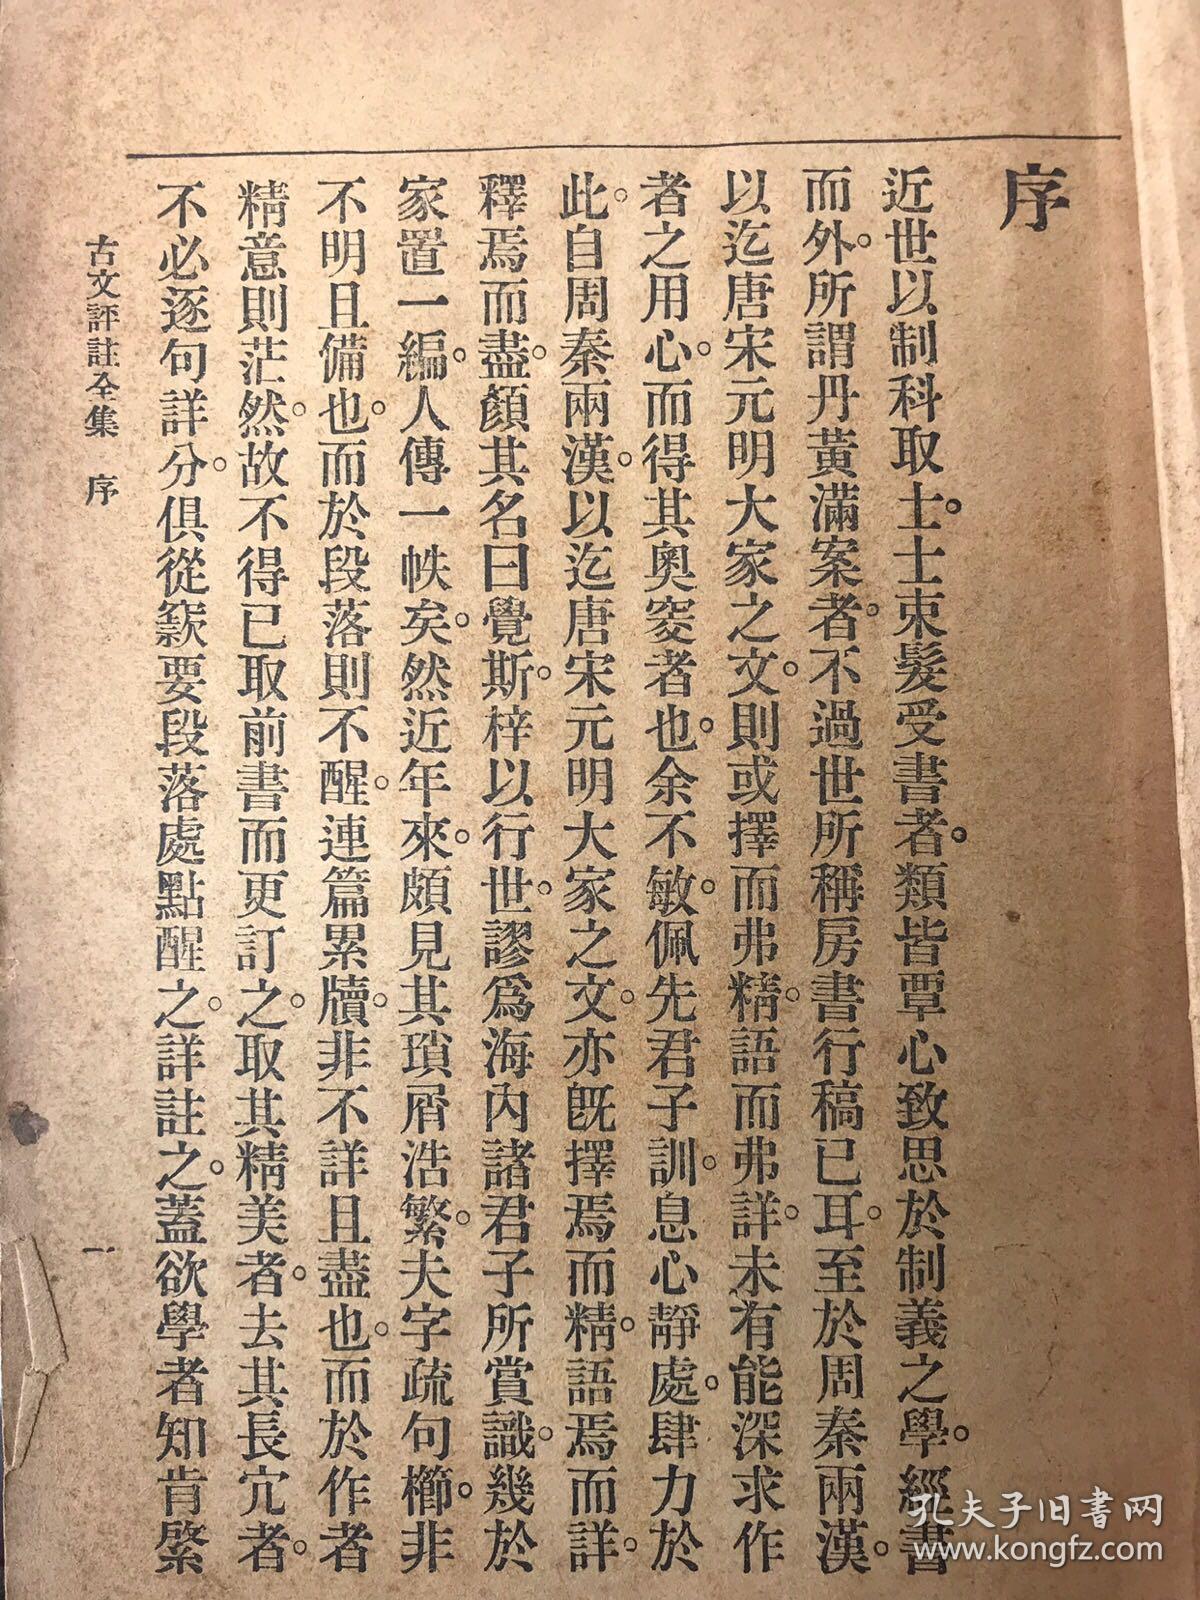 序
近世以制科取士。士束髮受書者。類皆覃心致思於制義之學。經書
而外。所謂丹黃滿案者。不過世所稱房書行稿已耳。至於周秦兩漢。
以迄唐宋元明大家之文。則或擇而弗精。語而弗詳。未有能深求作
者之用心。而得其奧窔者也。余不敏。佩先君子訓。息心靜處。肆力於
此。自周秦兩漢。以迄唐宋元明大家之文。亦旣擇焉而精。語焉而詳。
釋焉而盡。顏其名曰覺斯。梓以行世。謬爲海內諸君子所賞識。幾於
家置一編。人傳一帙矣。然近年來。頗見其瑣屑浩繁。夫字疏句櫛。非
不明且備也。而於段落則不醒。連篇累牘。非不詳且盡也。而於作者
精意則茫然。故不得已取前書而更訂之。取其精美者。去其長冗者。
不必逐句詳分。俱從窾要段落處點醒之。詳註之。蓋欲學者知肯綮
古文評註全集　序
一
孔夫子旧书网
www.kongfz.com